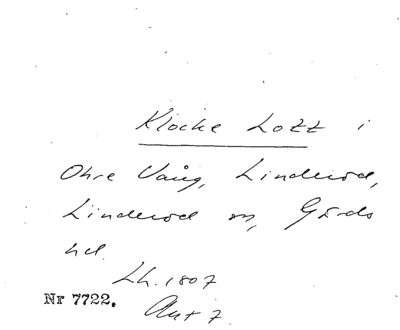 Klocke Lott i
Ohre Vång, Linderod,
Linderod sn, Gärds
hd.
Lh. 1807
Akt 7
Nr 7722.